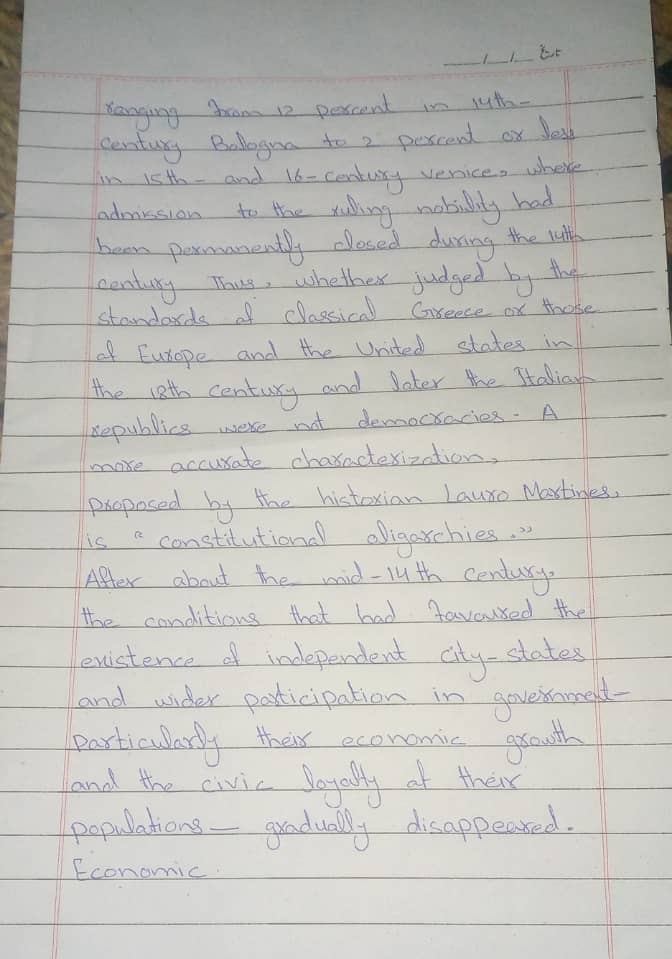 ranging from 12 percent in 14th-
century Bologna to 2 percent or less
in 15th- and 16-century venice, where
admission to the ruling nobility had
been permanently closed during the 14th
century Thus, whether judged by the
standards of classical Greece or those
of Europe and the United states in
the 18th century and later the Italian
republics were not democracies. A
more accurate characterization,
proposed by the historian Lauro Martines,
is "constitutional oligarchies."
After about the mid-14th century,
the conditions that had favoured the
existence of independent city-states
and wider participation in government-
Particularly their economic growth
and the civic loyalty of their
populations— gradually disappeared.
Economic